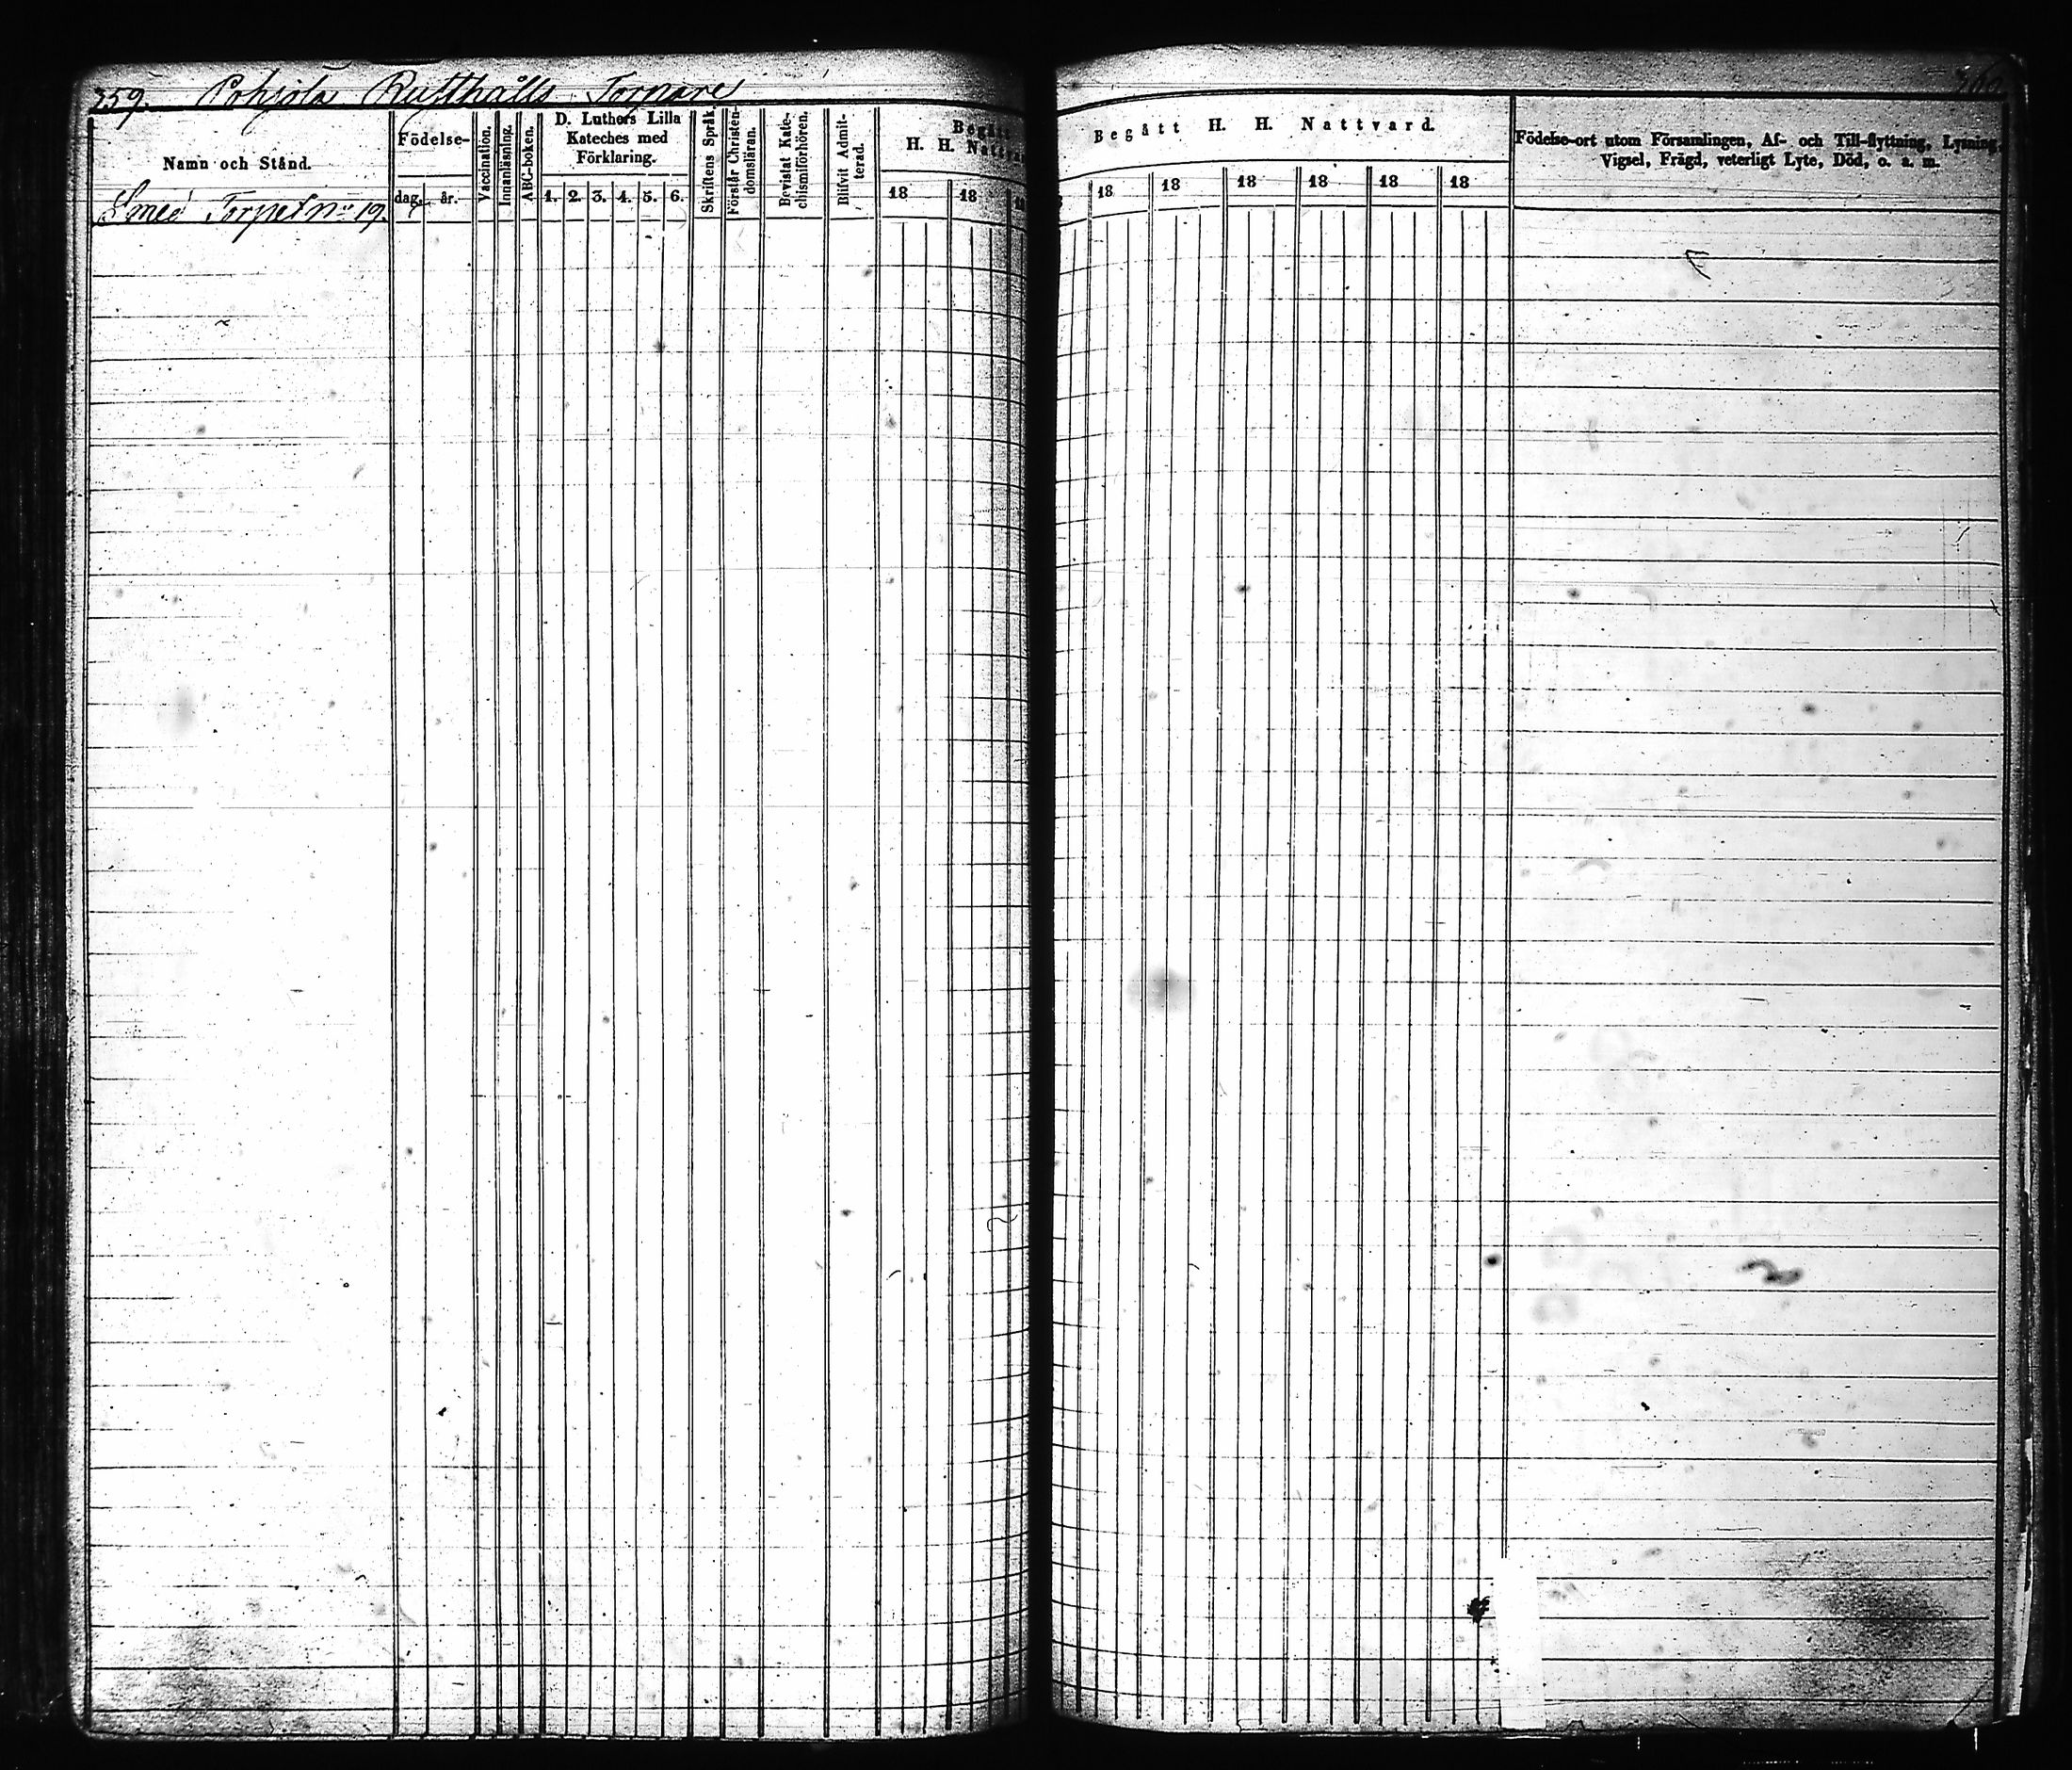 359. Pohjola Rusthålls Torpare
360.
Namn och Stånd.
Födelse-
dag. år.
Vaccination.
Innanläsning.
ABC-boken.
D. Luthers Lilla
Kateches med
Förklaring.
1. 2. 3. 4. 5. 6.
Skriftens Språk.
Förstår Christen-
domsläran.
Bevistat Kate-
chismiförhören.
Blifvit Admit-
terad.
Begått
H. H. Nattva
18 18
Begått H. H. Nattvard.
18 18 18 18 18 18
Födelse-ort utom Församlingen, Af- och Till-flyttning, Lysning,
Vigsel, Frägd, veterligt Lyte, Död, o. a. m.
Smed Torpet No 19.